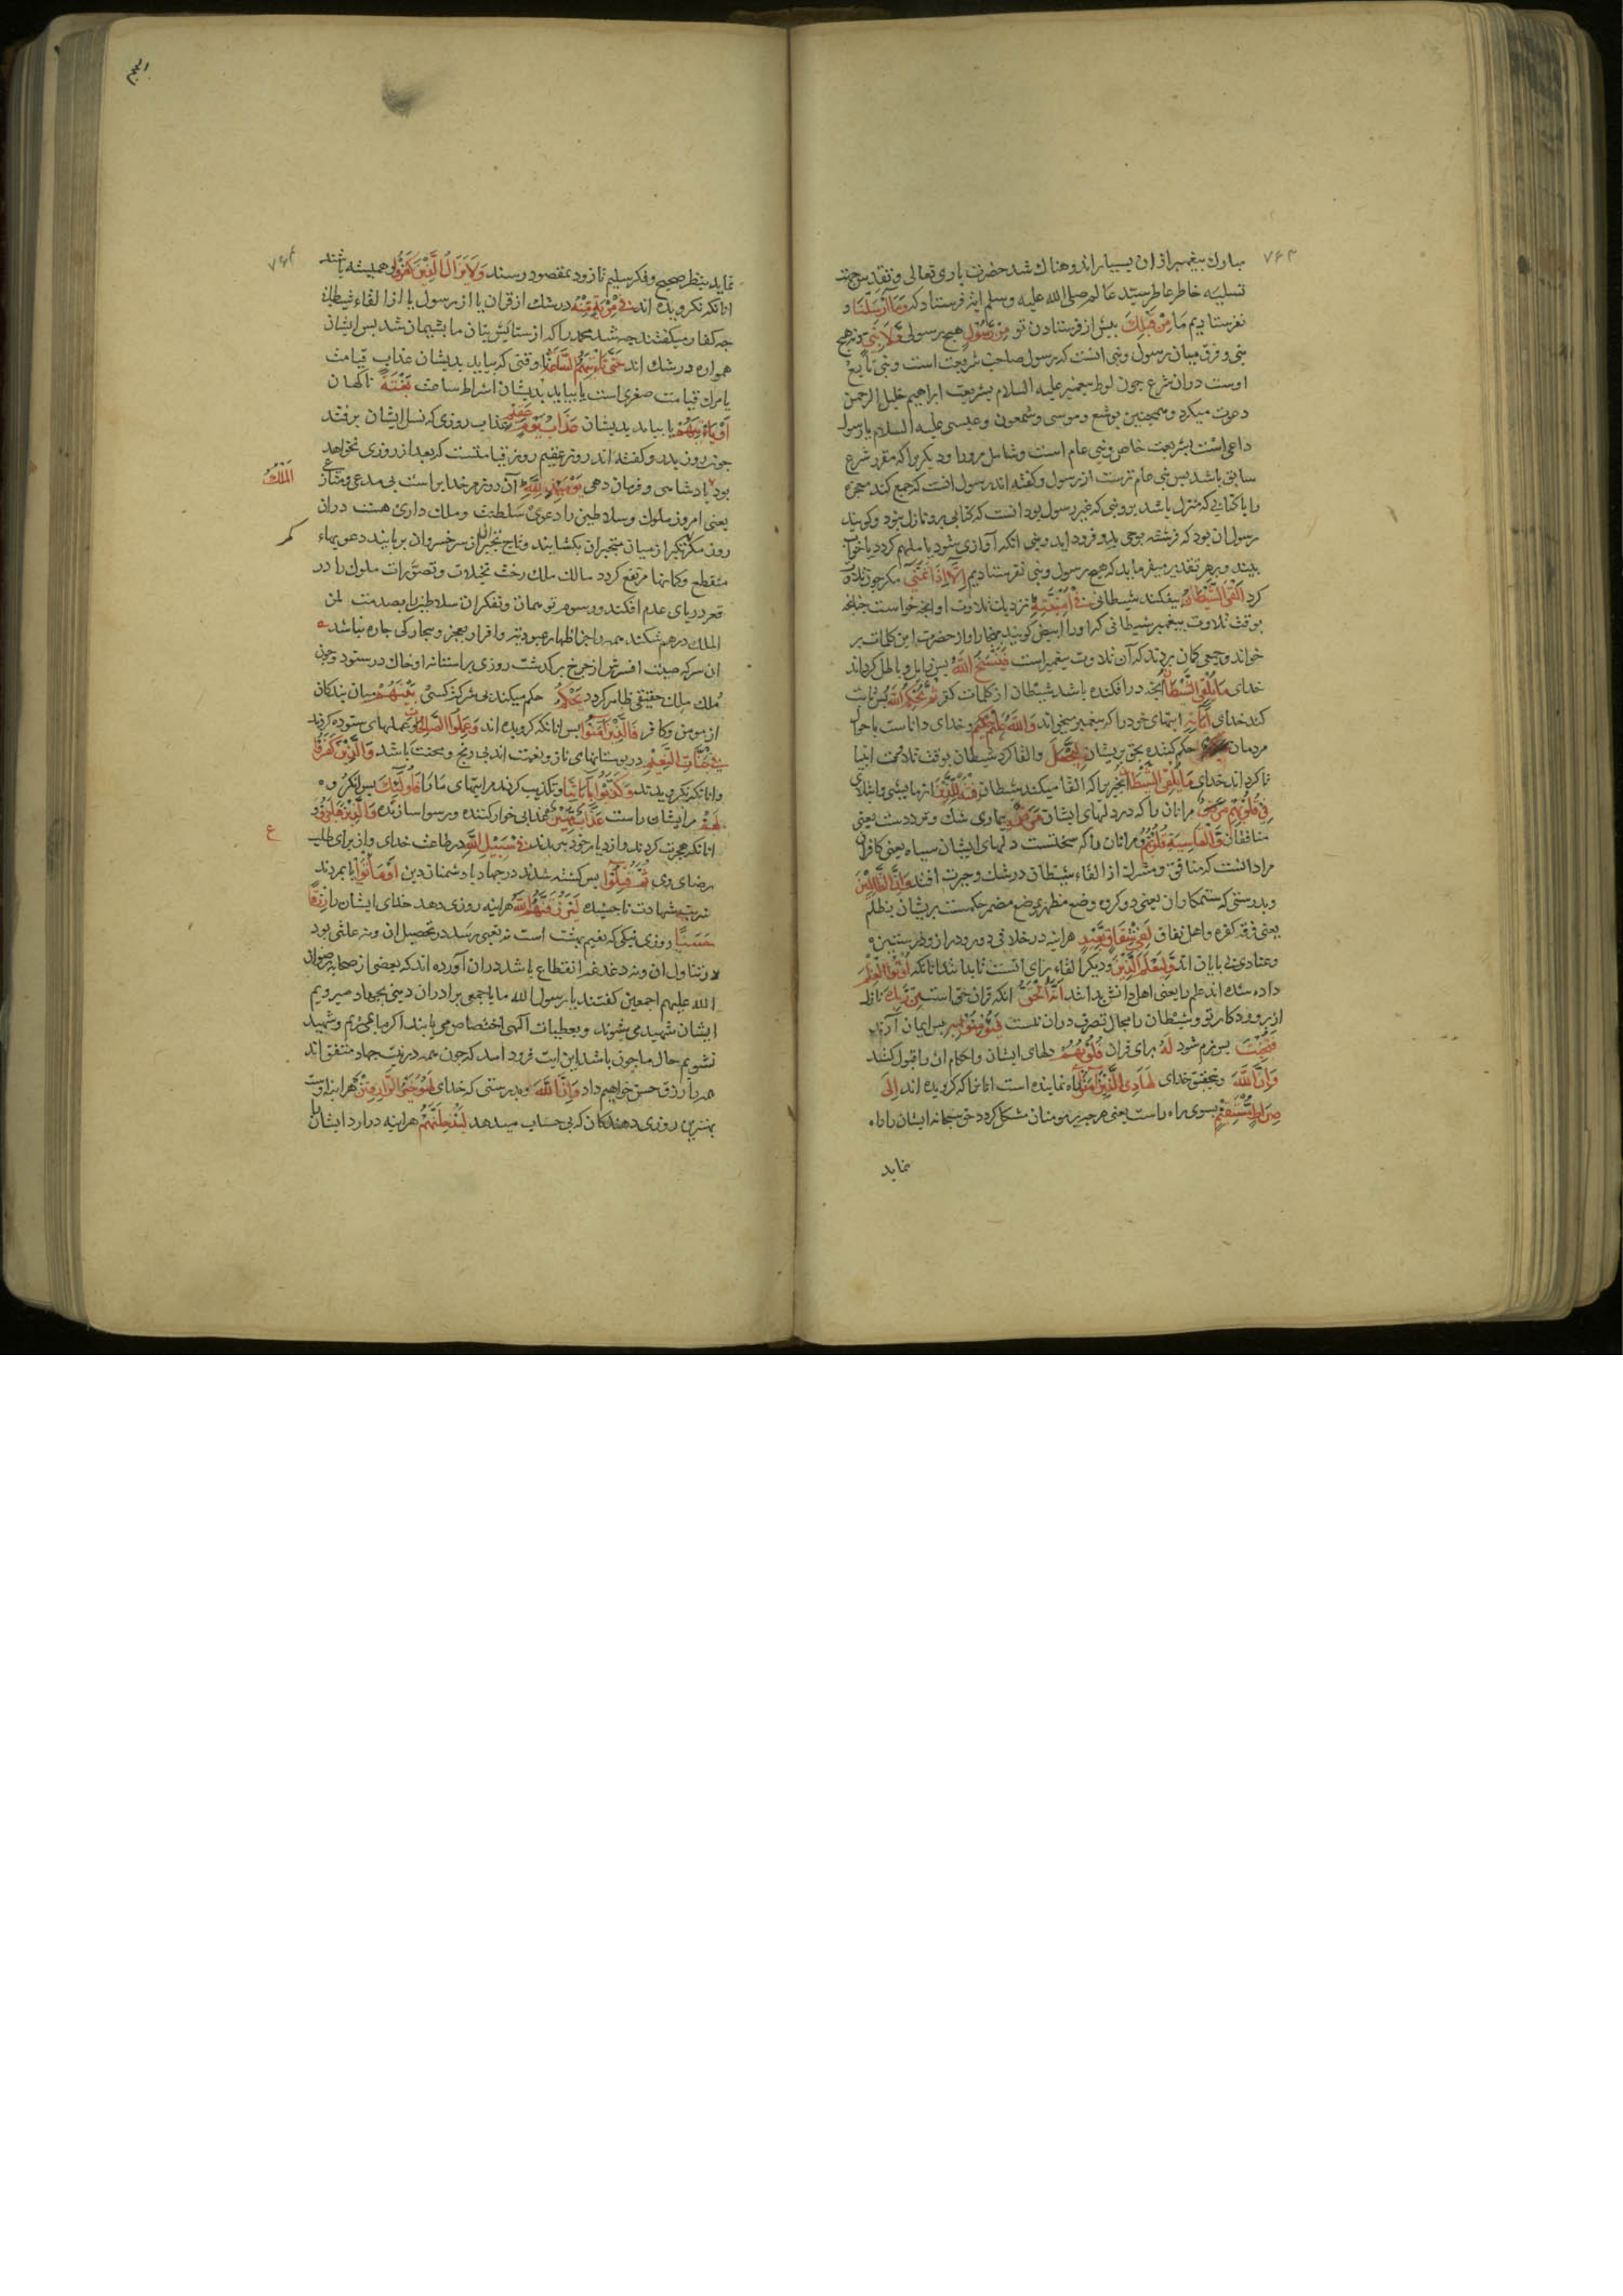 ۷۶۳
مبارك پیغمبر ازان بسیار اندوهناك شد حضرت باری تعالی و تقدیس جهت
تسلیه خاطر عاطر سید عالم صلی الله علیه وسلم ایة فرستاد که وَمَا أَرْسَلْنَا و
نفرستادیم ما مِنْ قَبْلِكَ بیش از فرستادن تو مِنْ رَسُولٍ هیچ رسولی وَلَا نَبِيٍّ ونه هیچ
نبی و فرق میان رسول ونبی انست که رسول صاحب شریعت است ونبی تابع
اوست دران شرع جون لوط پیغمبر علیه السلام بشریعت ابراهیم خلیل الرحمن
دعوت میکرد وهمچنین یوشع و موسی وشمعون وعیسی علیه السلام یا رسول
داعی است بشریعت خاص ونبی عام است وشامل مرورا ودیکری را که مقرر شرع
سابق باشد بس نبی عام ترست از رسول وکفته اند رسول انست که جمع کند معجزه
را با کتابی که منزل باشد برو ونبی که غیر رسول بود انست که کتابی برو نازل نبود وکویند
رسول ان بود که فرشته بوحی بدو فرود اید ونبی انکه آوازی شنود یا ملهم کردد یا خواب
بیند وبرهر تقدیر میفرماید که هیچ رسول ونبی نفرستادیم إِلَّا إِذَا تَمَنَّى مکر چون تلاوت
کرد أَلْقَى الشَّيْطَانُ بیفکند شیطانی فِي أُمْنِيَّتِهِ نزدیك تلاوت او انچه خواست چنانچه
بوقت تلاوت پیغمبر شیطانی که اورا ابیض کویند بهنجار اواز حضرت این کلمات بر
خواند وجمعی کمان بردند که آن تلاوت پیغمبر است فَيَنْسَخُ اللَّهُ بس زایل وباطل کرداند
خدای مَا يُلْقِي الشَّيْطَانُ انچه درافکنده باشد شیطان از کلمات کفر ثُمَّ يُحْكِمُ اللَّهُ بس ثابت
کند خدای آيَاتِهِ ایتهای خود را که پیغمبر میخواند وَاللَّهُ عَلِيمٌ حَكِيمٌ وخدای داناست باحوال
مردمان حکم کننده بحق بریشان لِيَجْعَلَ والقا کرد شیطان بوقت تلاوت انبیا
تا کرداند خدای مَا يُلْقِي الشَّيْطَانُ انچیز را که القا میکند شیطان فِتْنَةً لِلَّذِينَ ازمایشی وابتلای
فِي قُلُوبِهِمْ مَرَضٌ مرانان را که در دلهای ایشان مَرَضٌ بیماری شك وترددست یعنی
منافقان وَالْقَاسِيَةِ قُلُوبُهُمْ ومرانان را که سختست دلهای ایشان سیاه یعنی کافران
مراد انست که منافق ومشرك از القاء شیطان درشك وحیرت افتند وَإِنَّ الظَّالِمِينَ
وبدرستی که ستمکاران یعنی دو کروه وضع مظهر موضع مضمر حکمست بریشان بظلم
یعنی فرقه کفره واهل نفاق لَفِي شِقَاقٍ بَعِيدٍ هراینه درخلافی دور ودراز ودرستیزه
وعنادی بی بایان اند وَلِيَعْلَمَ الَّذِينَ ودیکر القاء برای انست تا بدانند انانکه أُوتُوا الْعِلْمَ
داده شده اند علم را یعنی اهل دانش بدانند أَنَّهُ الْحَقُّ انکه قران حق است مِنْ رَبِّكَ نازل
از پروردکار تو وشیطان را مجال تصرف دران نیست فَيُؤْمِنُوا بِهِ بس ایمان آرند
فَتُخْبِتَ بس نرم شود لَهُ برای قران قُلُوبُهُمْ دلهای ایشان واحکام ان را قبول کنند
وَإِنَّ اللَّهَ وبتحقیق خدای لَهَادِ الَّذِينَ آمَنُوا راه نماینده است انانرا که کرویده اند إِلَى
صِرَاطٍ مُسْتَقِيمٍ بسوی راه راست یعنی هرچیز بر مومنان مشکل کردد حق سبحانه ایشان را راه
نماید
۷۶۴
نماید بنظر صحیح وفکر سلیم تا زود بمقصود رسند وَلَا يَزَالُ الَّذِينَ كَفَرُوا وهمیشه باشند
انانکه نکرویده اند فِي مِرْيَةٍ مِنْهُ درشك از قران یا از رسول یا از القاء شیطان
جه کفار میکفتند جه شد محمد را که از ستایش بتان ما بشیمان شد بس ایشان
همواره درشك اند حَتَّى تَأْتِيَهُمُ السَّاعَةُ تا وقتی که بیاید بدیشان عذاب قیامت
یا مرك قیامت صغری است یا بیاید بدیشان اشراط ساعت بَغْتَةً ناکهان
أَوْ يَأْتِيَهُمْ یا بیاید بدیشان عَذَابُ يَوْمٍ عَقِيمٍ عذاب روزی که نسل ایشان برفتد
جون روز بدر وکفته اند روز عقیم روز قیامتست که بعد از روزی نخواهد
بود الْمُلْكُ پادشاهی وفرمان دهی يَوْمَئِذٍ لِلَّهِ آن روز مر خدایراست بی مدعی ومنازع
یعنی امروز ملوك وسلاطین را دعوی سلطنت وملك داری هست دران
روز کمر تکبر از میان متجبران بکشایند وتاج تجبر از سر خسروان بربایند دعویهاء
منقطع وکمانها مرتفع کردد مالك ملك رخت تخیلات وتصورات ملوك را در
قعر دریای عدم افکند ورسوم توهمان وتفکران سلاطین را بصدمت لمن
الملك درهم شکند همه را جز اظهار عبودیت واقرار بعجز وبیچارکی جاره نباشد
ان سر که صیت افسرش از چرخ برکذشت روزی براستانه او خاك در شود وچون
مُلك مِلك حقیقی ظاهر کردد يَحْكُمُ حکم میکند بی شرکت کسی بَيْنَهُمْ میان بندکان
از مومن وکافر فَالَّذِينَ آمَنُوا بس انانکه کرویده اند وَعَمِلُوا الصَّالِحَاتِ وعملهای ستوده کردند
فِي جَنَّاتِ النَّعِيمِ در بوستانهای ناز ونعمت اند بی رنج ومحنت باشد وَالَّذِينَ كَفَرُوا
وانانکه نکرویدند وَكَذَّبُوا بِآيَاتِنَا وتکذیب کردند مر ایتهای ما را فَأُولَئِكَ بس انکروه
لَهُمْ مر ایشان راست عَذَابٌ مُهِينٌ عذابی خوار کننده ورسوا سازنده وَالَّذِينَ هَاجَرُوا و
انانکه هجرت کردند واز دیار خود ببریدند فِي سَبِيلِ اللَّهِ در طاعت خدای واز برای طلب
رضای وی ثُمَّ قُتِلُوا بس کشته شدند درجهاد با دشمنان دین أَوْ مَاتُوا یا بمردند
شربت شهادت ناچشیده لَيَرْزُقَنَّهُمُ اللَّهُ هراینه روزی دهد خدای ایشان را رِزْقًا
حَسَنًا روزی نیکی که نعیم بهشت است نه تعبی رسد در تحصیل ان ونه علتی بود
در تناول ان ونه دغدغه انقطاع باشد دران آورده اند که بعضی از صحابه رضوان
الله علیهم اجمعین کفتند یا رسول الله ما با جمعی برادران دینی بجهاد میرویم
ایشان شهید می شوند وبعطیات آلهی اختصاص می یابند اکر ما بمیریم وشهید
نشویم حال ما چون باشد این ایت فرود امد که چون همه درنیت جهاد متفق اند
همه را رزق حسن خواهیم داد وَإِنَّ اللَّهَ وبدرستی که خدای لَهُوَ خَيْرُ الرَّازِقِينَ هراینه اوست
بهترین روزی دهندکان که بی حساب میدهد لَيُدْخِلَنَّهُمْ هراینه درارد ایشان را